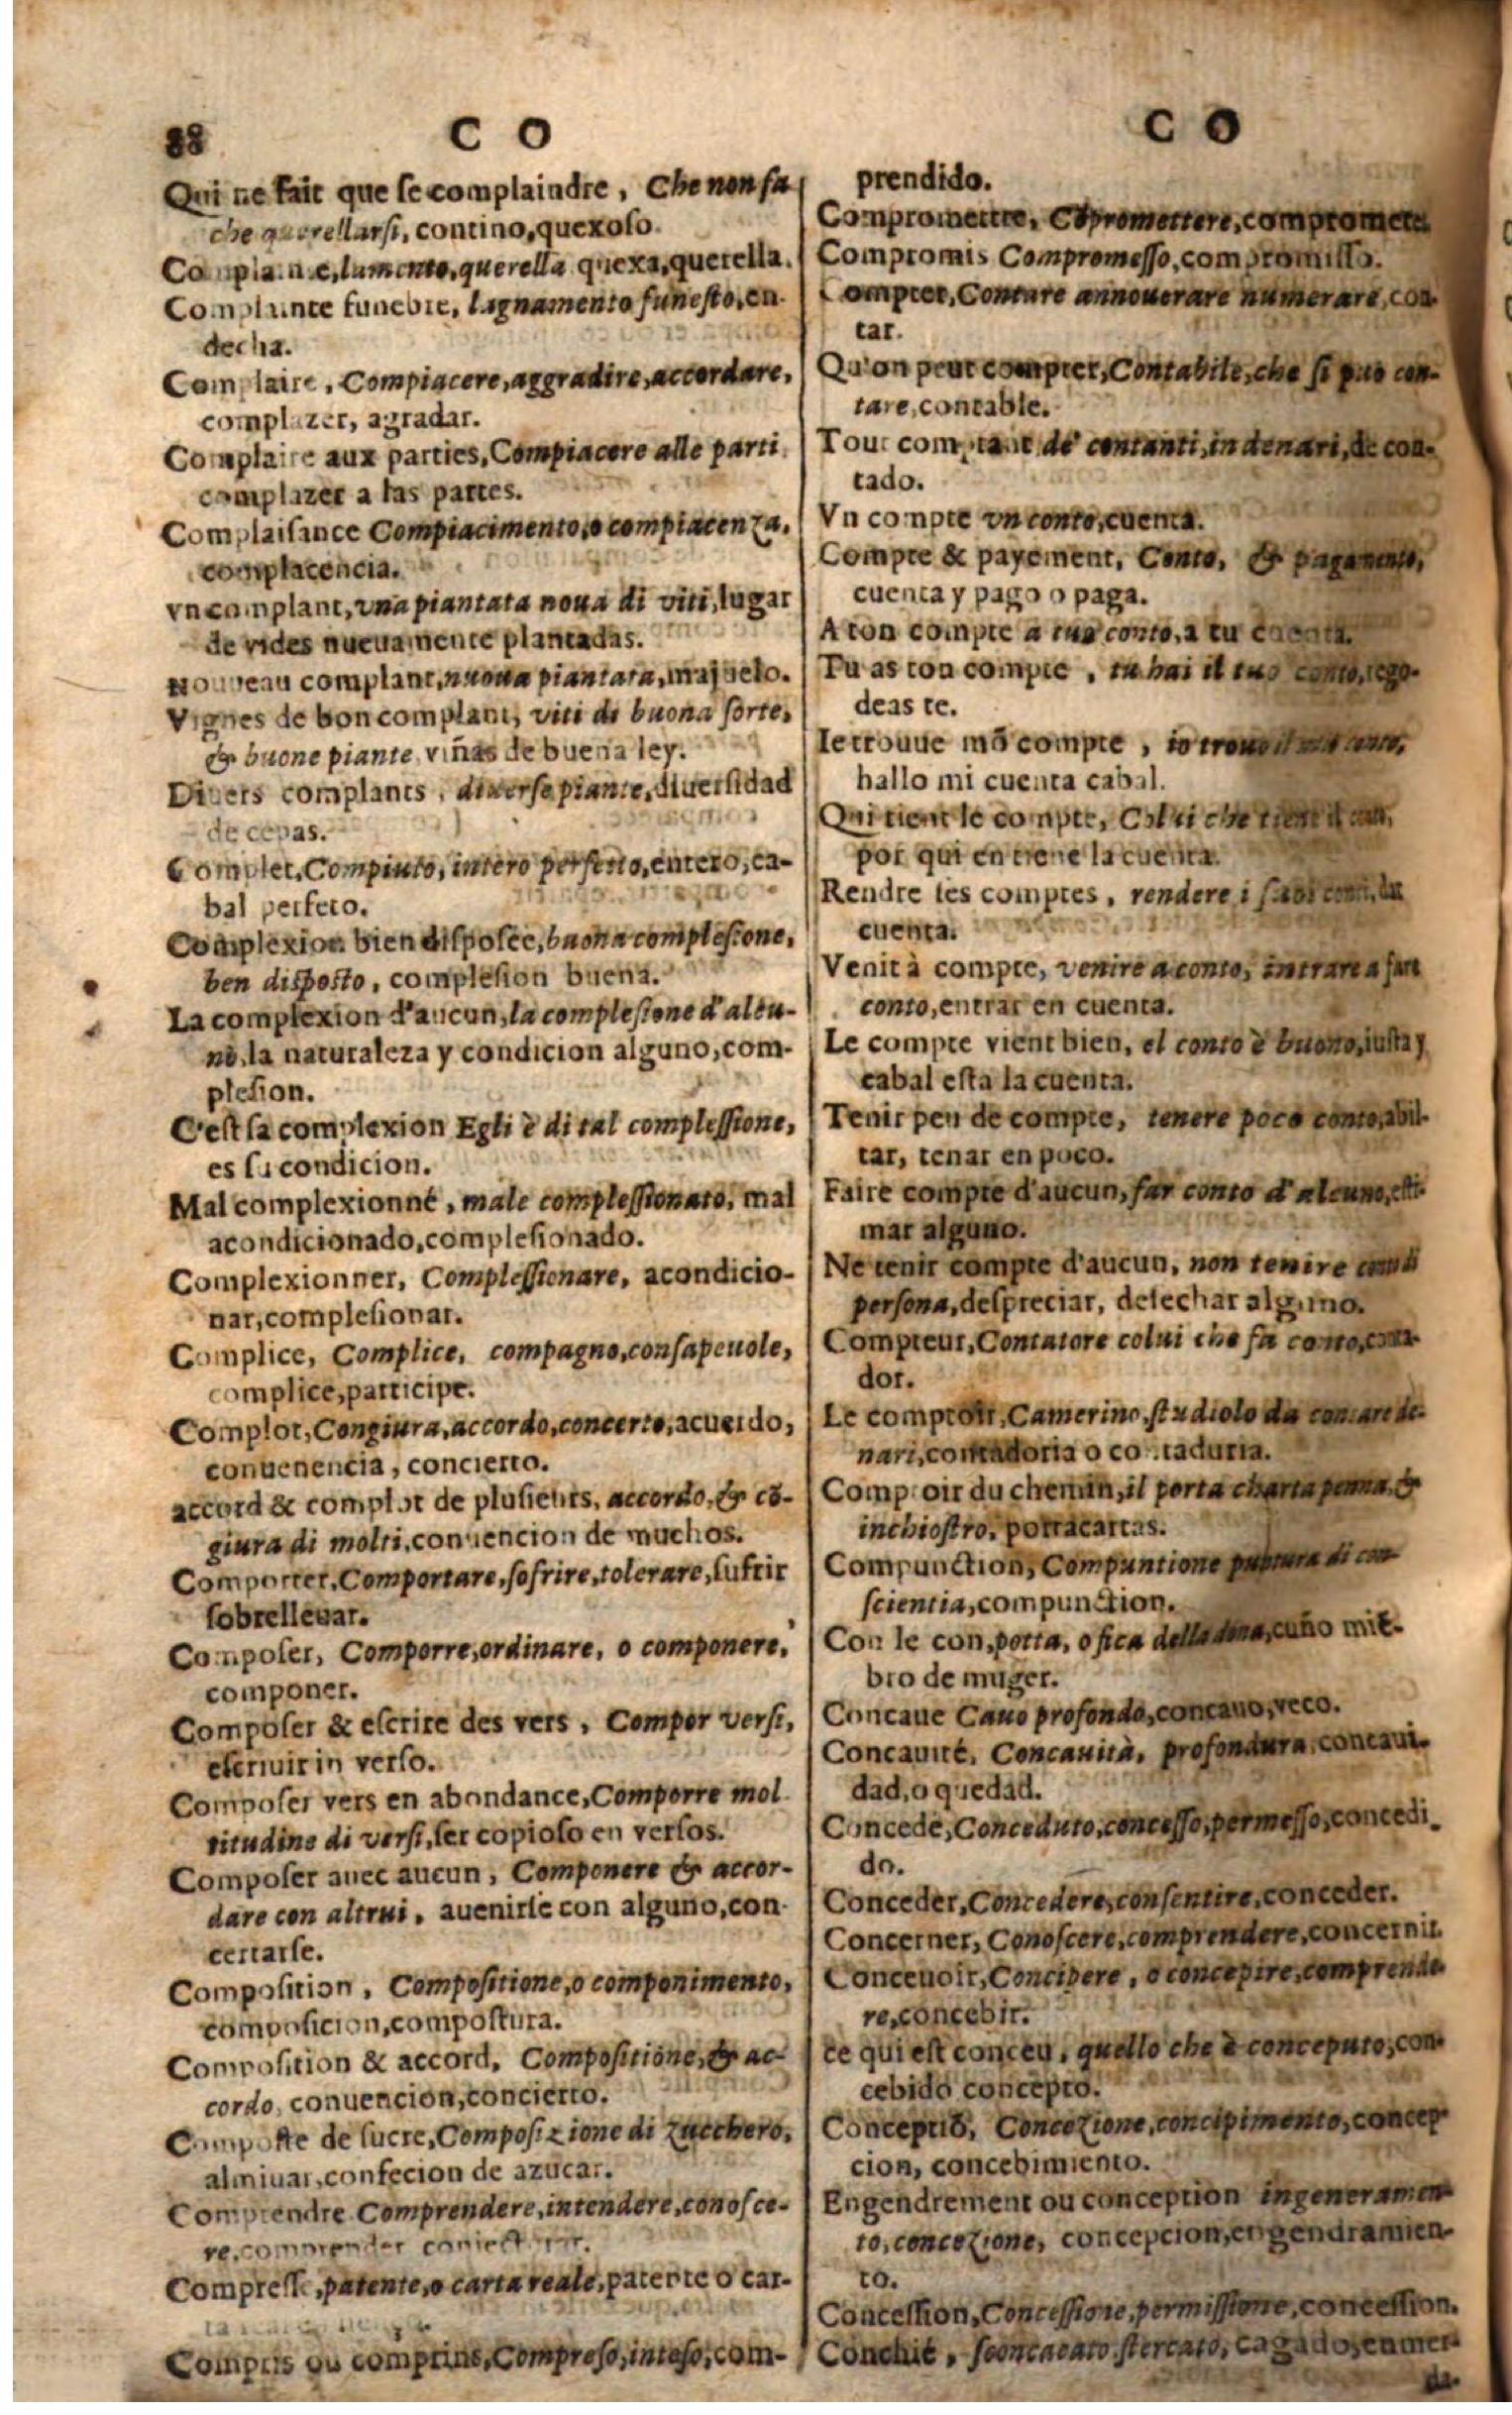 88 C O
Qui ne fait que ſe complaindre, Che non fa
che querellarſi, contino, quexoſo.
Complainte, lamento, querella quexa, querella.
Complainte funebre, lagnamento funeſto, en-
decha.
Complaire, Compiacere, aggradire, accordare,
complazer, agradar.
Complaire aux parties, Compiacere alle parti
complazer a las partes.
Complaiſance Compiacimento, o compiacenza,
complacencia.
vn complant, vna piantata noua di viti, lugar
de vides nueuamente plantadas.
Nouueau complant, nuoua piantata, majuelo.
Vignes de bon complant, viti di buona ſorte,
& buone piante, viñas de buena ley.
Diuers complants, diuerſe piante, diuerſidad
de cepas.
Complet, Compiuto, intero perfetto, entero, ca-
bal perfeto.
Complexion bien diſpoſee, buona compleſione,
ben diſpoſto, compleſion buena.
La complexion d'aucun, la compleſione d'alcu-
no, la naturaleza y condicion alguno, com-
pleſion.
C'eſt ſa complexion Egli è di tal compleſſione,
es ſu condicion.
Mal complexionné, male compleſſionato, mal
acondicionado, compleſionado.
Complexionner, Compleſſionare, acondicio-
nar, compleſionar.
Complice, Complice, compagno, conſapeuole,
complice, participe.
Complot, Congiura, accordo, concerto, acuerdo,
conuenencia, concierto.
accord & complot de pluſieurs, accordo, & cõ-
giura di molti, conuencion de muchos.
Comporter, Comportare, ſofrire, tolerare, ſufrir
ſobrelleuar.
Compoſer, Comporre, ordinare, o componere,
componer.
Compoſer & eſcrire des vers, Compor verſi,
eſcriuir in verſo.
Compoſer vers en abondance, Comporre mol
titudine di verſi, ſer copioſo en verſos.
Compoſer auec aucun, Componere & accor-
dare con altrui, auenirſe con alguno, con-
certarſe.
Compoſition, Compoſitione, o componimento,
compoſicion, compoſtura.
Compoſition & accord, Compoſitione, & ac-
cordo, conuencion, concierto.
Compoſte de ſucre, Compoſizione di zucchero,
almiuar, confecion de azucar.
Comprendre Comprendere, intendere, conoſce-
re, comprender
Compreſſe, patente, o carta reale, patente o car-
Compris ou comprins, Compreſo, inteſo, com-
C O
prendido.
Compromettre, Cõpromettere, comprometer.
Compromis Compromeſſo, compromiſſo.
Compter, Contare annouerare numerare, con-
tar.
Qu'on peut compter, Contabile, che ſi puo con-
tare, contable.
Tout comptant de' contanti, in denari, de con-
tado.
Vn compte vn conto, cuenta.
Compte & payement, Conto, & pagamento,
cuenta y pago o paga.
A ton compte a tuo conto, a tu cuenta.
Tu as ton compte, tu hai il tuo conto, rego-
deas te.
Ie trouue mõ compte, io trouo il mio conto,
hallo mi cuenta cabal.
Qui tient le compte, Colui che tiene il
por qui en tiene la cuenta.
Rendre les comptes, rendere i ſuoi conti, dar
cuenta.
Venir à compte, venire a conto, intrare a fare
conto, entrar en cuenta.
Le compte vient bien, el conto è buono, iuſta y
cabal eſta la cuenta.
Tenir peu de compte, tenere poco conto, abil-
tar, tenar en poco.
Faire compte d'aucun, far conto d'alcuno, eſti-
mar alguno.
Ne tenir compte d'aucun, non tenire
perſona, deſpreciar, deſechar alguno.
Compteur, Contatore colui che fa conto, conta-
dor.
Le comptoir, Camerino, ſtudiolo da contare de-
nari, contadoria o contaduria.
Comptoir du chemin, il porta charta penna, &
inchioſtro, portacartas.
Compunction, Compuntione puntura di con-
ſcientia, compunction.
Con le con, potta, o fica della dona, cuño mié-
bro de muger.
Concaue Cauo profondo, concauo, veco.
Concauité, Concauità, profondura, concaui-
dad, o quedad.
Concede, Conceduto, conceſſo, permeſſo, concedi-
do.
Conceder, Concedere, conſentire, conceder.
Concerner, Conoſcere, comprendere, concernir.
Conceuoir, Concipere, o concepire, comprende-
re, concebir.
ce qui eſt conceu, quello che è conceputo, con-
cebido concepto.
Conceptiõ, Concezione, concipimento, concep
cion, concebimiento.
Engendrement ou conception ingeneramen-
to, concezione, concepcion, engendramien-
to.
Conceſſion, Conceſſione, permiſſione, conceſſion.
Conchié, ſconcacato ſtercato, cagado, enmer-
da-